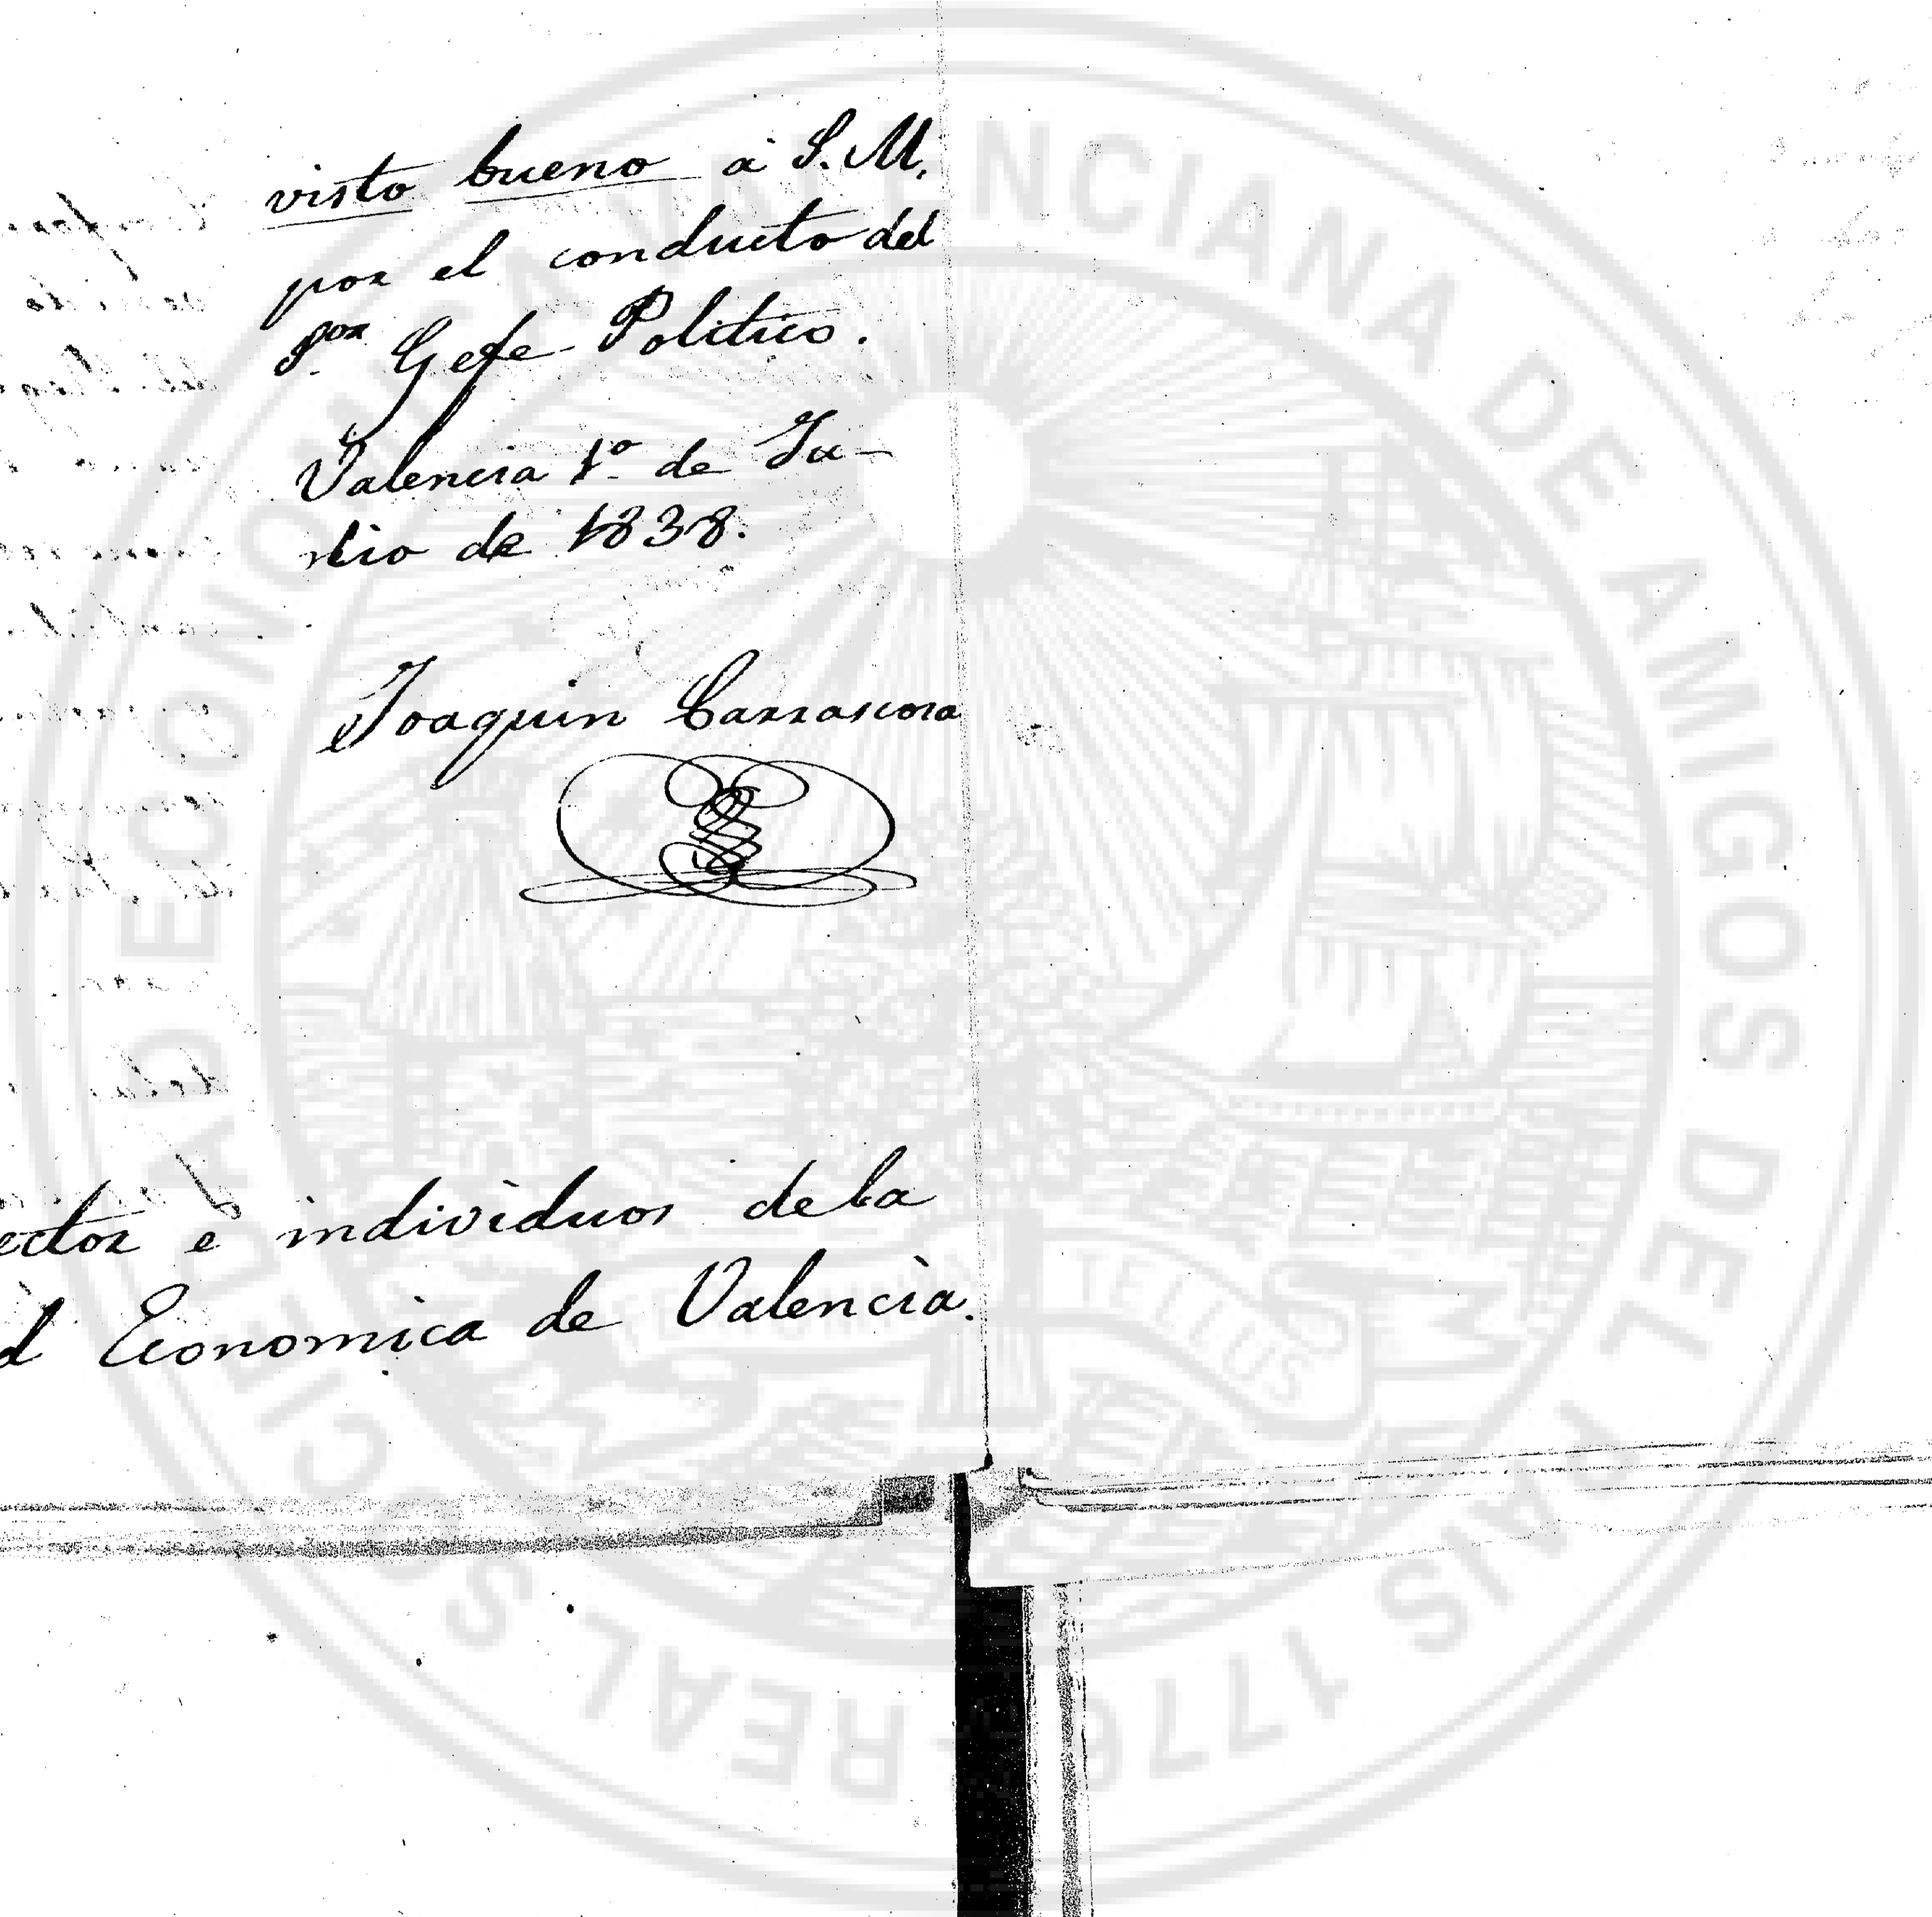 visto bueno á S. M.
por el conducto del
Sor. Gefe Politico.
Valencia 1º de Ju-
lio de 1838.
Joaquin Carrascosa
ector e individuos dela
d Economica de Valencia.
REAL SOCIEDAD ECONOMICA VALENCIANA DE AMIGOS DEL PAIS 1776